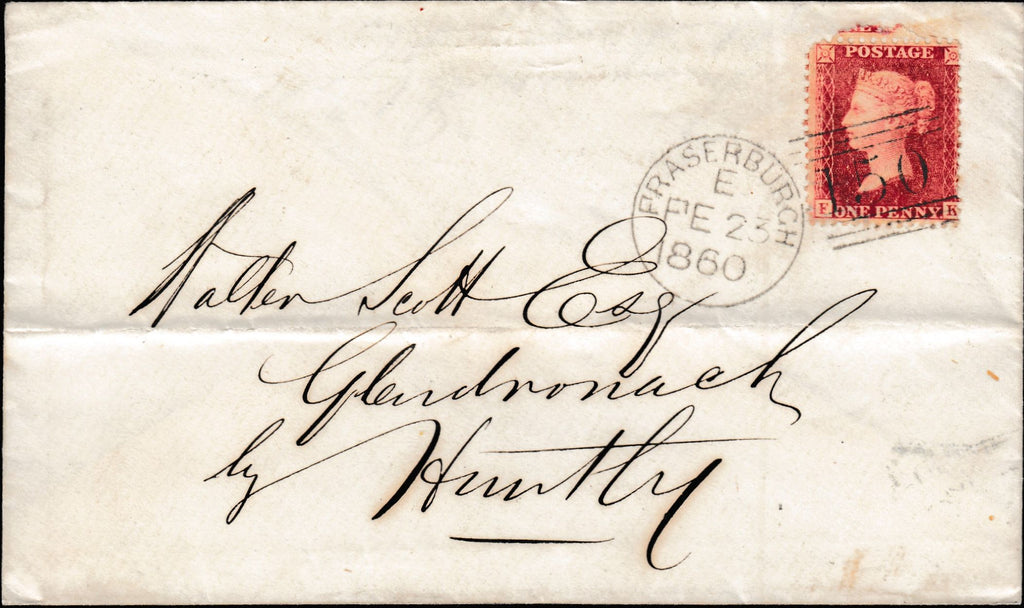 POSTAGE
F ONE PENNY K
150
FRASERBURGH
E
FE 23
1860
Walter Scott Esqr
Glendronach
by Huntly